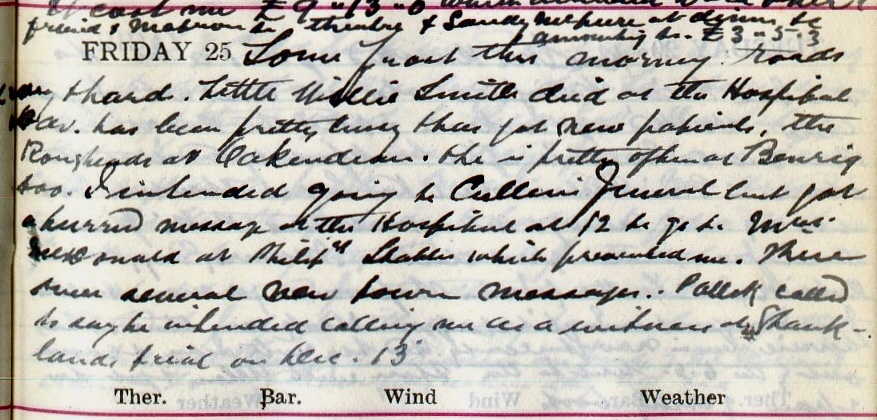 it cost me £9"13"0 which included
friend & Matron to theatre & Sandy at dinner, &
amounting to £3"5"3
FRIDAY 25 Some frost this morning. roads
very hard. Little Willie Smith died at the Hospital
Dav. has been pretty busy & has got new patients, the
Rougheads at Oakendean. He is pretty often at Benrig
too. I intended going to Cullens funeral but got
a hurried message at the Hospital at 12 to go to Mrs.
McDonald at Philips Stables which prevented me. There
were several new town messages. Pollok called
to say he intended calling me as a witness at Shank-
lands trial on Dec. 13
Ther. Bar. Wind Weather